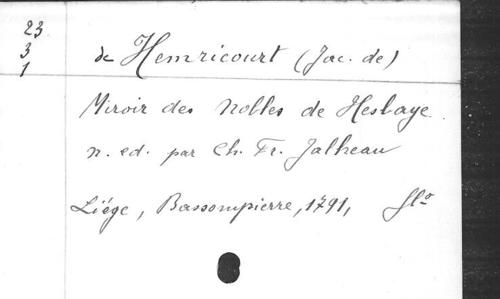 23
3
1
de Hemricourt (Jac. de)
Miroir des Nobles de Hesbaye
n. ed. par Ch. Fr. Jalheau
Liége, Bassompierre, 1791, flo